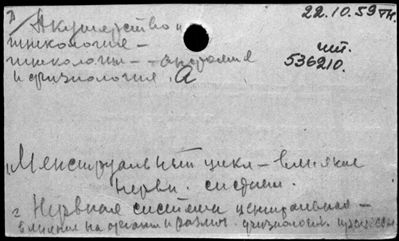 Акушерство и
гинекология —
гинекологии — анатомия
и физиология. А
22.10.59 тк.
чит.
536210.
Менструальный цикл — влияние
нервн. систем.
2 Нервная система центральная —
влияние на органы и различ. физиологич. процессы